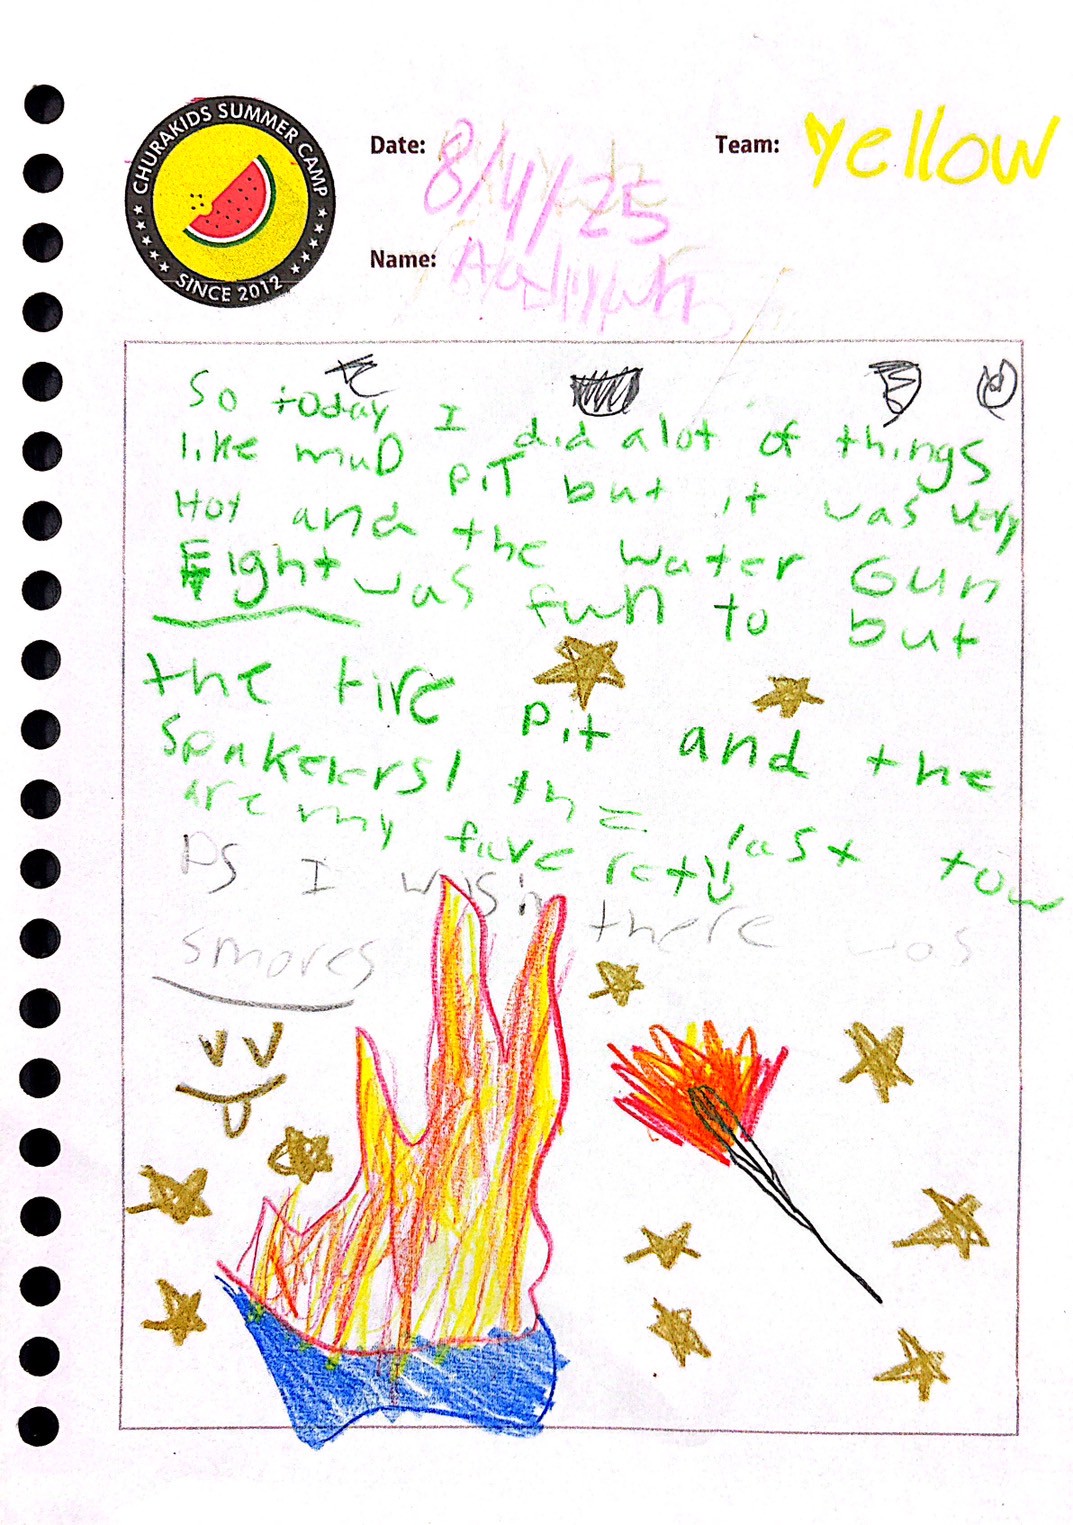 CHURAKIDS SUMMER CAMP
SINCE 2012
Date: 8/4/25
Team: Yellow
Name: Aaliyah
So today I did alot of things
like muD piT but it was very
Hot and the water Gun
Fight was fun to but
the fire pit and the
the last tow
are my fave
Ps I was in there was
smores